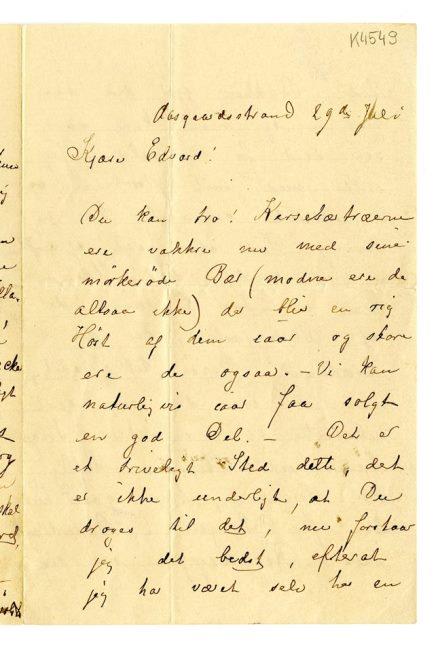 K4549
Aasgaardsstrand 29de Juli
Kjære Edvard!
Du kan tro! Kersebærtræerne
ere vakkre nu med sine
mørkerøde Bær (modne ere de
altsaa ikke) der blir en rig
Høst af dem iaar og store
ere de ogsaa. – Vi kan
naturligvis iaar faa solgt
en god Del. – Det er
et triveligt Sted dette, det
er ikke underligt, at Du
drages til det, nu forstaar
jeg det bedst, efterat
jeg har været selv her en